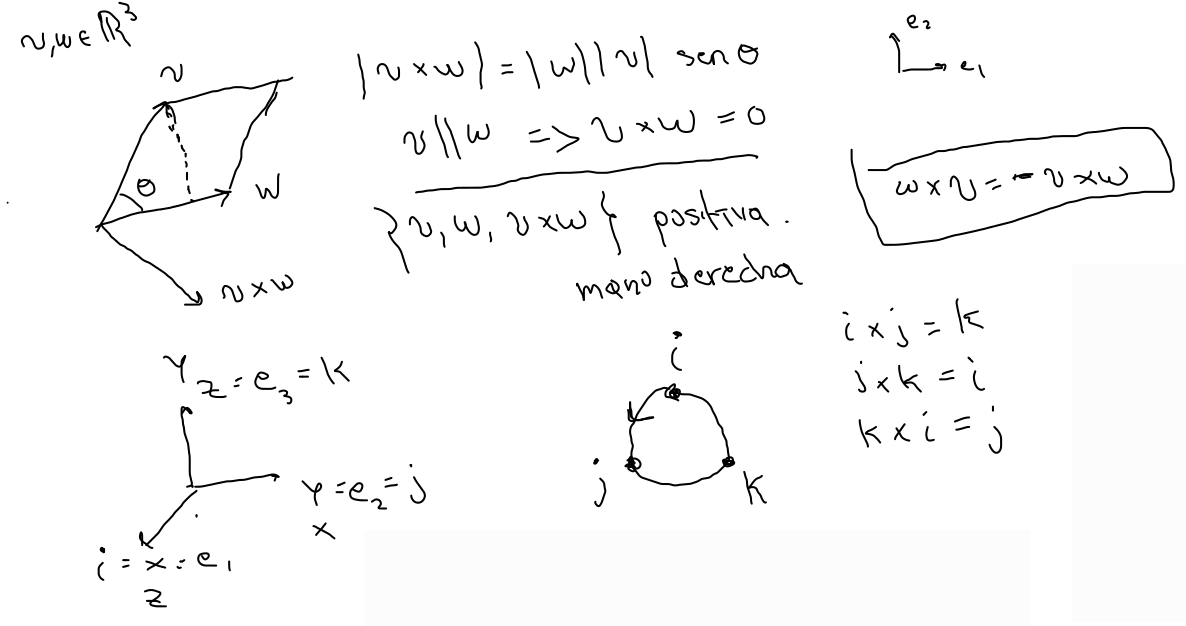 v,w ∈ ℝ³
v
θ
w
v×w
|v×w| = |w||v| sen θ
v∥w => v×w = 0
{v, w, v×w} positiva.
mano derecha
e₂
e₁
w×v = - v×w
Y
z = e₃ = k
y = e₂ = j
x
i = x = e₁
z
i
j
k
i×j = k
j×k = i
k×i = j